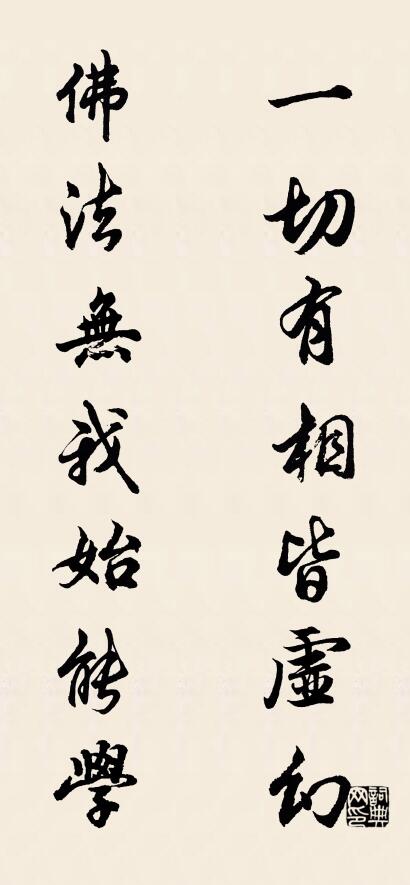 一切有相皆虛幻
佛法無我始能學
詞典網印